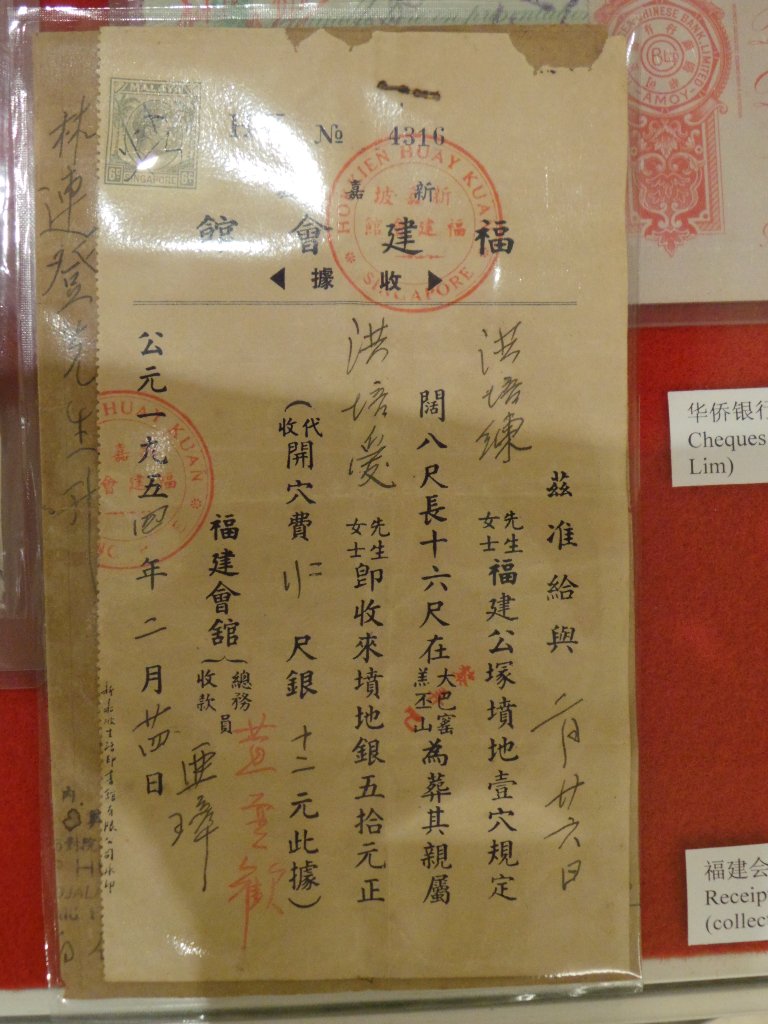 MALAYA
6c
SINGAPORE
№ 4316
HOKKIEN HUAY KUAN
SINGAPORE
新嘉坡
福建會館
新嘉
福建會舘
◀據收▶
茲准給與
二月廿六日
洪培練
先生
女士
福建公塚墳地壹穴規定
闊八尺長十六尺在
大巴窰
羔丕山
為葬其親屬
洪培爰
先生
女士
卽收來墳地銀五拾元正
(代收開穴費
尺銀十二元此據)
福建會舘
總務
收款
員
黃
亞璋
公元一九五四年二月廿四日
HUAY KUAN
嘉
福建會
林連登先生
CHINESE BANK, LIMITED
AMOY
华侨银行
Cheques
Lim)
福建会
Receip
(collect